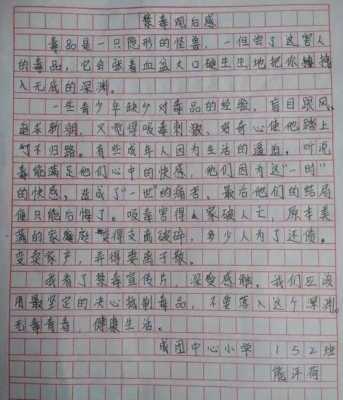 禁毒观后感
毒品是一只隐形的怪兽，一但尝了这害人
的毒品，它会张着血盆大口硬生生地把你
入无底的深渊。
一些青少年缺少对毒品的经验，盲目跟风，
追求新潮，又觉得吸毒刺激，好奇心使他踏上
了不归路。有些成年人因为生活的
毒能满足他们心中的快感，他们因为这“一时”
的快感，造成了“一世”的痛苦，最后他们的结局
便只能后悔了。吸毒害得人家破人亡，原本美
满的家庭变得支离破碎，多少人为了还债，
变卖家产，弄得妻离子散。
我看了禁毒宣传片，深受感触。我们应该
用最坚定的决心抵制毒品，不要落入这个深渊。
无毒青春，健康生活。
成团中心小学 152班